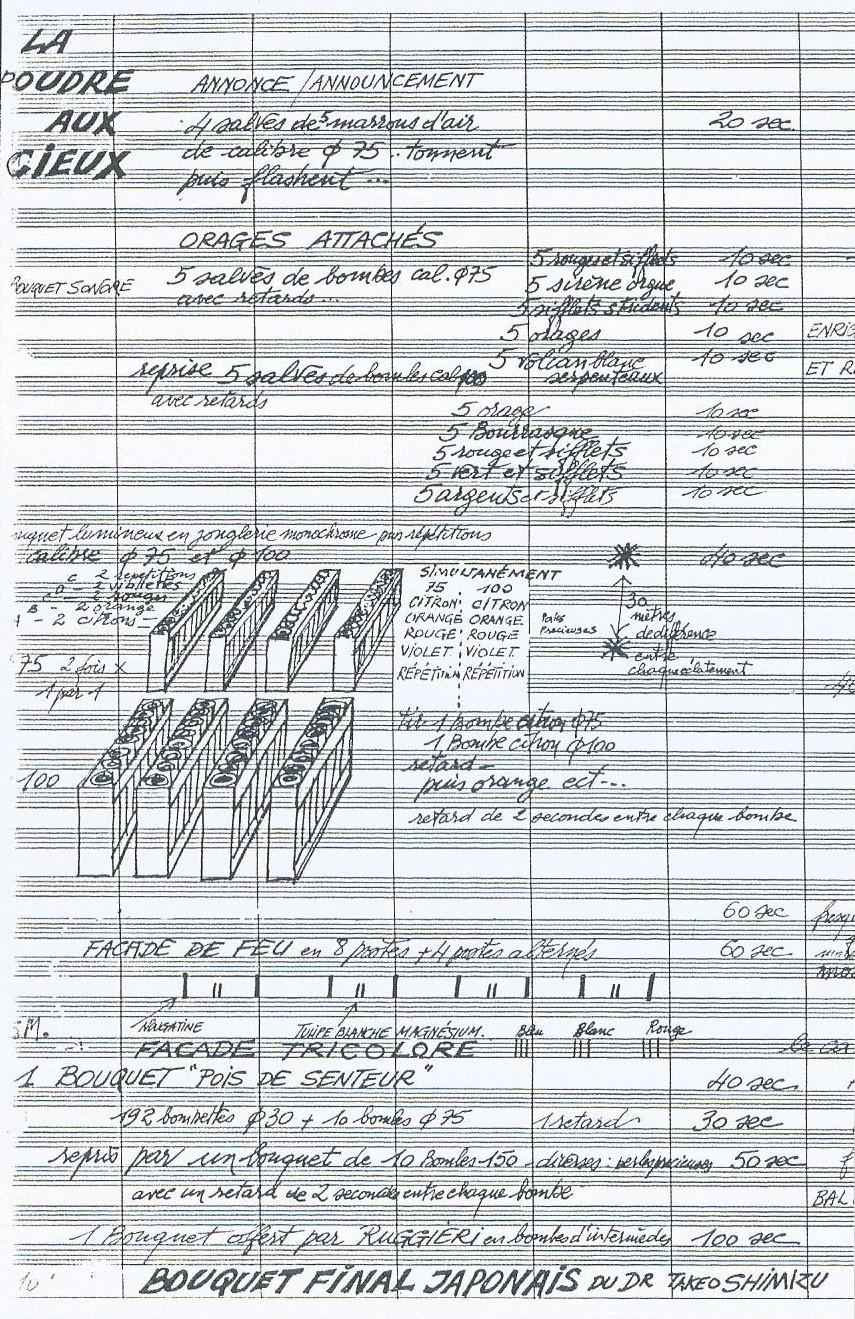 LA
POUDRE
AUX
CIEUX
ANNONCE / ANNOUNCEMENT
4 salves de 5 marrons d'air 20 sec.
de calibre φ 75 .. tonnent
puis flashent ...
ORAGES ATTACHÉS
BOUQUET SONORE
5 salves de bombes cal. φ75
avec retards ...
5 rouge et sifflets 10 sec
5 sirène orgue 10 sec
5 sifflets stridents 10 sec
5 orages 10 sec
5 volcan blanc 10 sec
serpenteaux
ENRIS
ET R
reprise 5 salves de bombes cal 100
avec retards
5 orage 10 sec
5 Bourrasque 10 sec
5 rouge et sifflets 10 sec
5 vert et sifflets 10 sec
5 argents et sifflets 10 sec
uquet lumineux en jonglerie monochrome puis répétitions
calibre φ 75 et φ 100 40 sec
2 répétitions
D - 2 violettes
C - 2 rouges
B - 2 orange
A - 2 citrons -
SIMULTANÉMENT
75 100
CITRON CITRON
ORANGE ORANGE
ROUGE ROUGE
VIOLET VIOLET
RÉPÉTITION RÉPÉTITION
Précieuses
30
mètres
de différence
entre
chaque éclatement
75 2 fois x
1 par 1
tir 1 bombe citron φ75
1 Bombe citron φ100
retard -
puis orange ect ...
retard de 2 secondes entre chaque bombe
100
60 sec
FACADE DE FEU en 8 postes + 4 postes alternés 60 sec
NOUGATINE
TULIPE BLANCHE MAGNÉSIUM.
Bleu Blanc Rouge
SM.
FACADE TRICOLORE
1 BOUQUET "POIS DE SENTEUR" 40 sec
192 bombettes φ30 + 10 bombes φ75 1 retard 30 sec
repris par un bouquet de 10 Bombes 150 - diverses : perles précieuses 50 sec
avec un retard de 2 secondes entre chaque bombe
BAL
1 Bouquet offert par RUGGIERI en bombes d'intermèdes 100 sec
10'
BOUQUET FINAL JAPONAIS DU DR TAKEO SHIMIZU